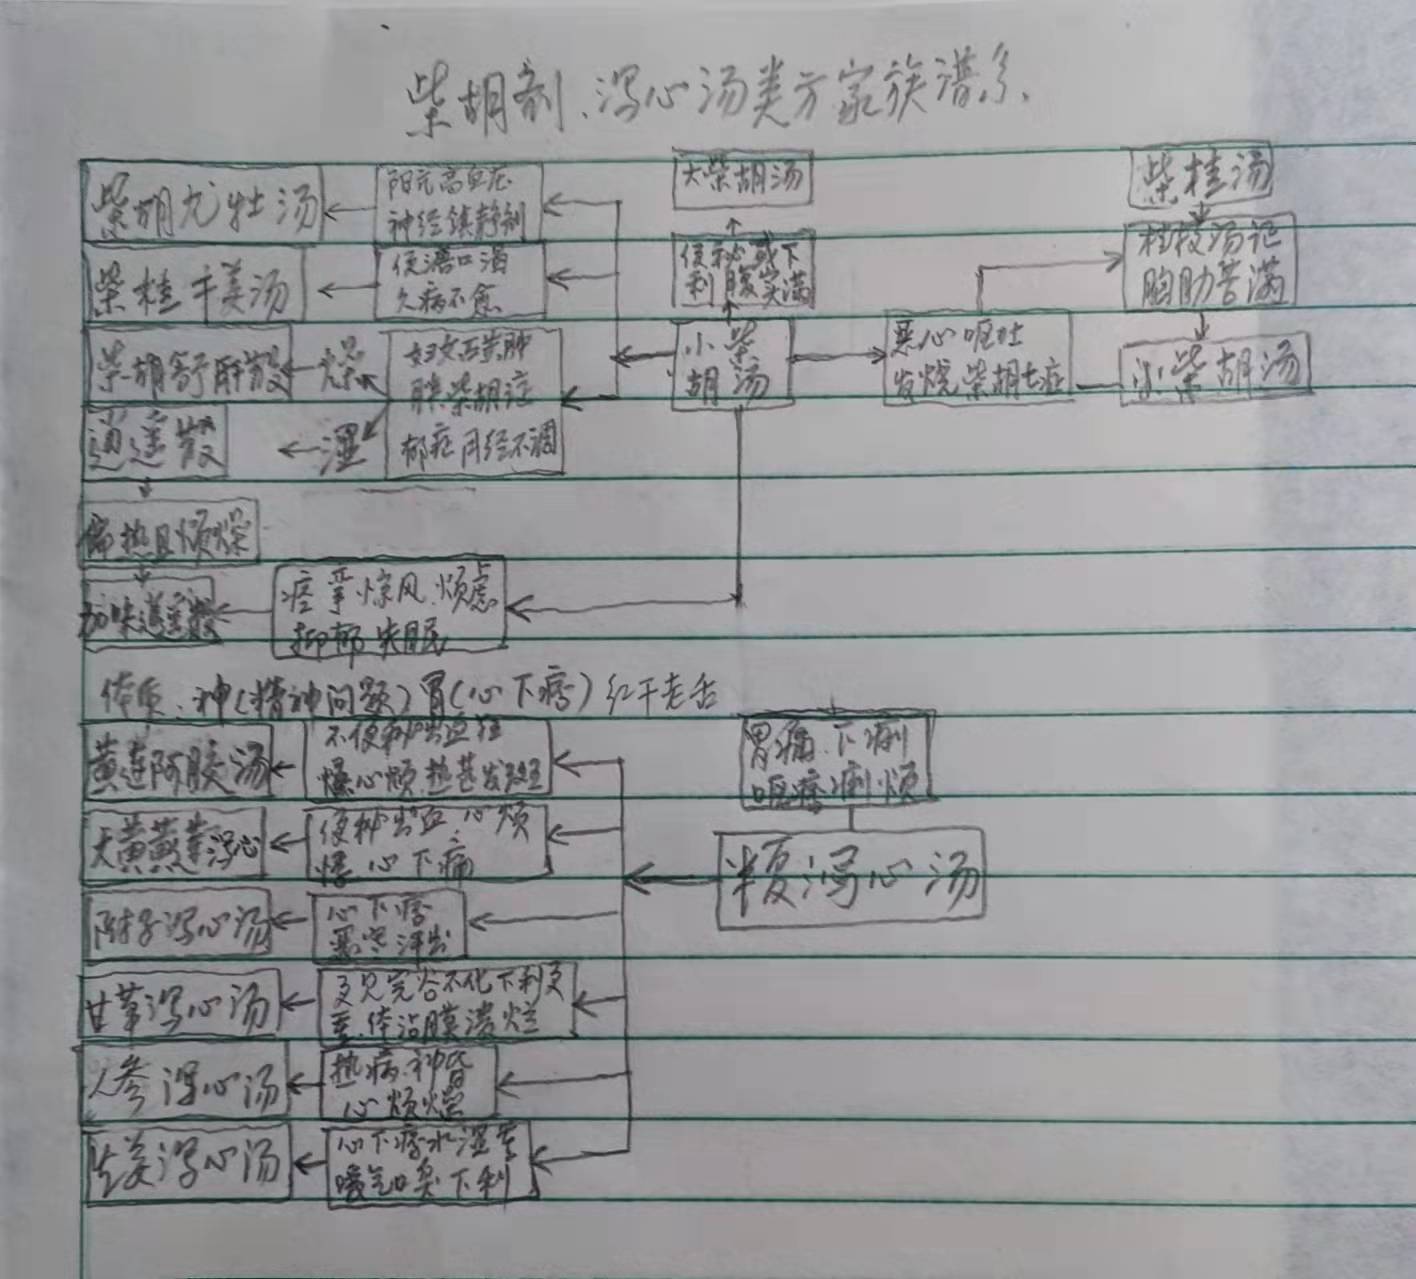 柴胡剂、泻心汤类方家族谱系
柴胡龙牡汤
阳亢高血压
神经镇静剂
大柴胡汤
柴桂汤
柴桂干姜汤
便溏口渴
久病不愈
便秘或下
利腹实满
桂枝汤证
胸胁苦满
柴胡舒肝散
燥
妇女
胖柴胡证
郁症月经不调
小柴
胡汤
恶心呕吐
发烧柴胡七症
小柴胡汤
逍遥散
湿
偏热且烦燥
加味逍遥散
痉挛惊风、烦虑
抑郁失眠
体质、神(精神问题)胃(心下痞)红干老舌
黄连阿胶汤
不便秘出血狂
燥心烦、热甚发斑
胃痛、下痢
呕痞痢烦
大黄黄芩泻心
便秘出血心烦
燥心下痛
半夏泻心汤
附子泻心汤
心下痞
恶寒汗出
甘草泻心汤
多见完谷不化下利更
重、体沾膜溃烂
人参泻心汤
热病、神昏
心烦燥
生姜泻心汤
心下痞水湿重
嗳气口臭下利